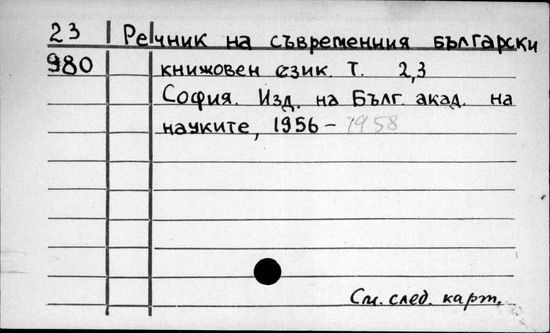 23 Речник на съвременния български
980 книжовен език. Т. 2,3
София. Изд. на Бълг. акад. на
науките, 1956 – 1958
См. след. карт.